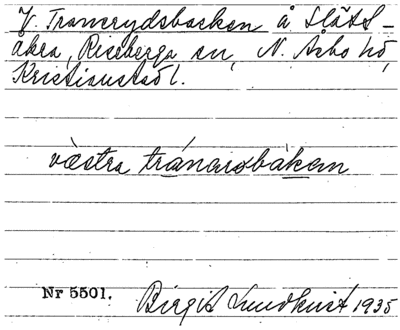 V. Tranerydsbacken å Slätt-
åkra, Riseberga sn, N. Åsbo hd,
Kristianst.s l.
västra tránarsbàken
Nr 5501. Birgit Lundkvist 1935